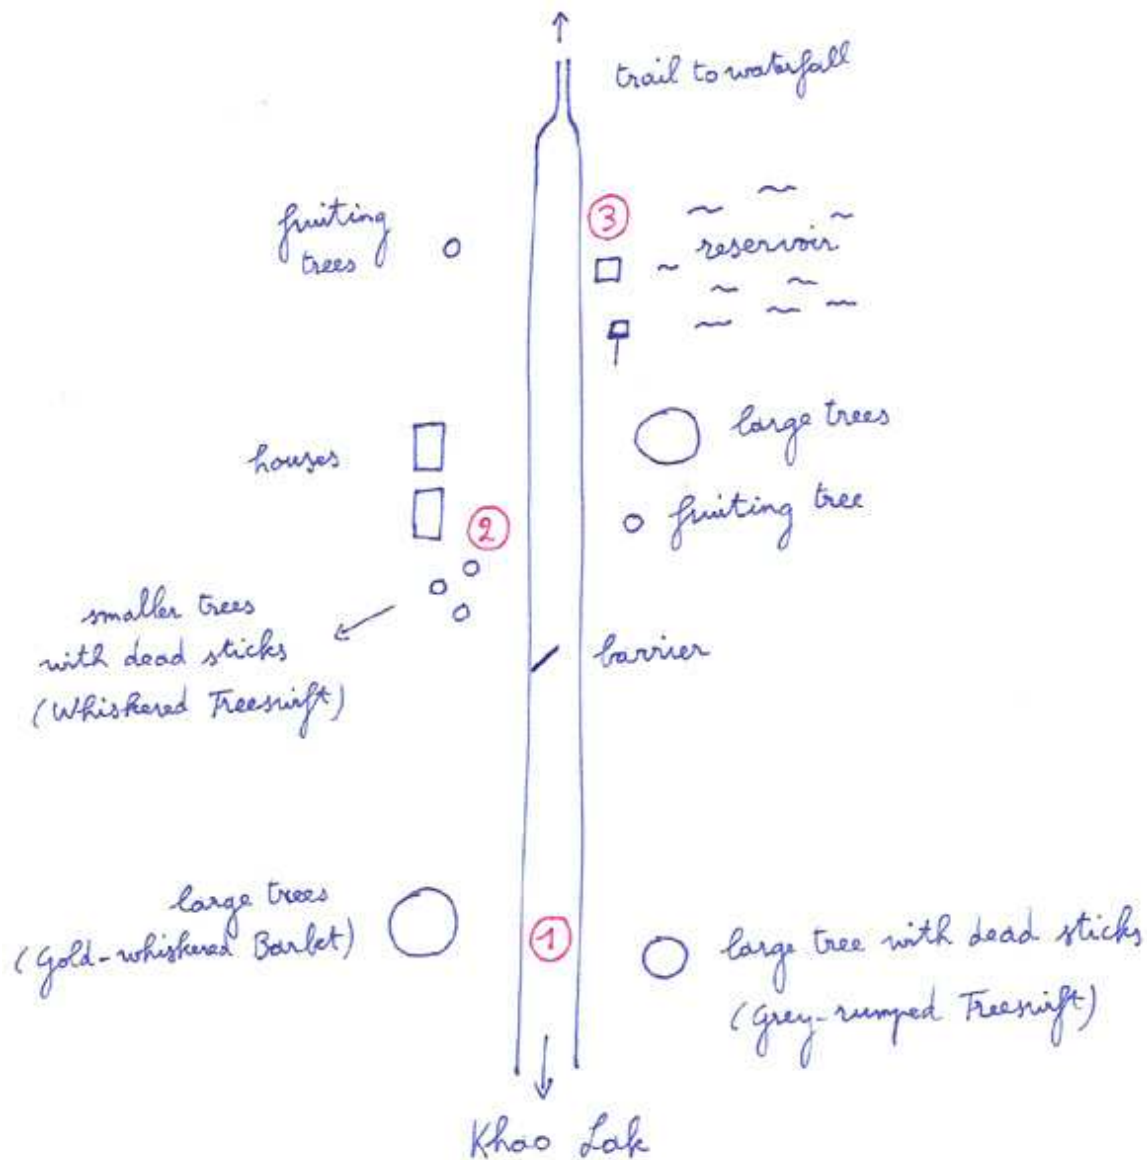 trail to waterfall
fruiting
trees
3
reservoir
large trees
houses
2
fruiting tree
smaller trees
with dead sticks
(Whiskered Treeswift)
barrier
large trees
(Gold-whiskered Barbet)
1
large tree with dead sticks
(Grey-rumped Treeswift)
Khao Lak